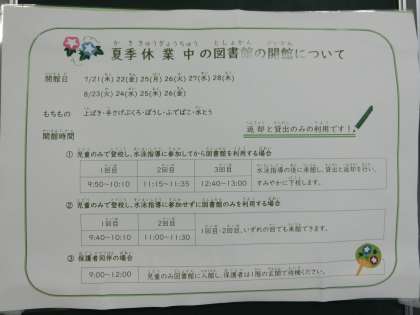 夏季休業中の図書館の開館について
開館日 7/21(木) 22(金) 25(月) 26(火) 27(水) 28(木)
8/23(火) 24(水) 25(木) 26(金)
もちもの 上ばき・手さげぶくろ・ぼうし・ふでばこ・水とう
返却と貸出のみの利用です!
開館時間
① 児童のみで登校し、水泳指導に参加してから図書館を利用する場合
1回目 2回目 3回目 水泳指導の後に来館し、貸出と返却を行い、
9:50~10:10 11:15~11:35 12:40~13:00 すみやかに下校します。
② 児童のみで登校し、水泳指導に参加せずに図書館のみを利用する場合
1回目 2回目 1回目・2回目、いずれの回でも来館できます。
9:40~10:10 11:00~11:30
③ 保護者同伴の場合
9:00~12:00 児童のみ図書館に入館し、保護者は1階の玄関で待機ください。